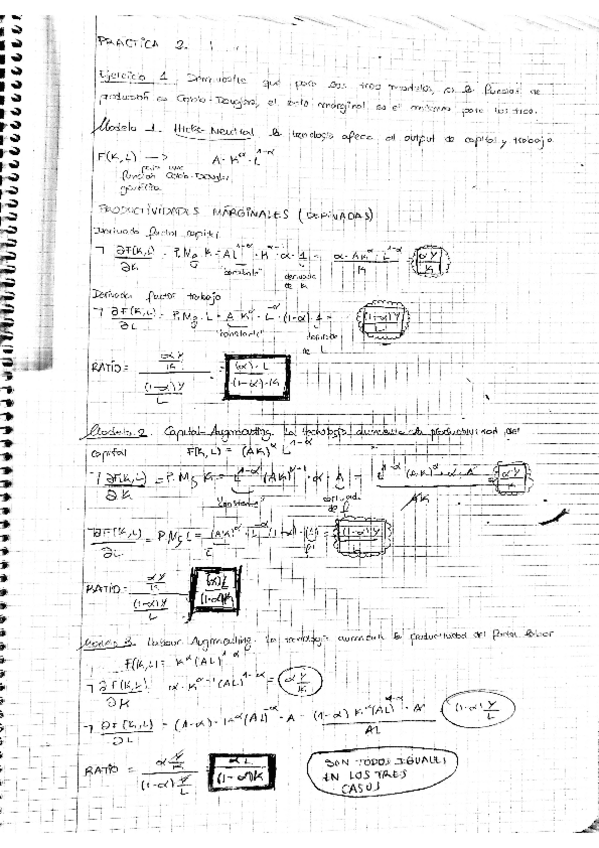 PRACTICA 2.
Ejercicio 1. Demuestre que para los tres modelos, si la función de
producción es Cobb-Douglas, el ratio marginal es el mismo para los tres.
Modelo 1. Hicks-Neutral la tecnología afecta al output de capital y trabajo
F(K,L) —> A · K^α · L^1-α
para una
función Cobb-Douglas
genérica
PRODUCTIVIDADES MARGINALES (DERIVADAS)
Derivada factor capital
∂F(K,L)/∂K = P.Mg K = A L^1-α · K^α-1 · α · 1 = α · A K^α · L^1-α / K = αY/K
"constante" derivada de K
Derivada factor trabajo
∂F(K,L)/∂L = P.Mg. L = A K^α · L^-α · (1-α) · 1 = (1-α)Y/L
"constante" derivada de L
RATIO = (αY/K) / ((1-α)Y/L) = (α)·L / (1-α)·K
Modelo 2. Capital-Augmenting. La tecnología aumenta la productividad del
capital F(K,L) = (AK)^α L^1-α
∂F(K,L)/∂K = P.Mg K = L^1-α (AK)^α-1 · α · A = L^1-α (AK)^α · α · A / AK = αY/K
"constante"
∂F(K,L)/∂L = P.Mg L = (AK)^α · L^-α (1-α) · (1) = (1-α)Y/L
RATIO = (αY/K) / ((1-α)Y/L) (α)L / (1-α)K
Modelo 3. Labour Augmenting. La tecnología aumenta la productividad del factor labor
F(K,L) = K^α (AL)^1-α
∂F(K,L)/∂K α · K^α-1 (AL)^1-α = α Y/K
∂F(K,L)/∂L = (1-α) · K^α (AL)^-α · A = (1-α) K^α (AL)^1-α · A / AL (1-α) Y/L
RATIO = (α Y/K) / ((1-α) Y/L) αL / (1-α)K
SON TODOS IGUALES
EN LOS TRES
CASOS